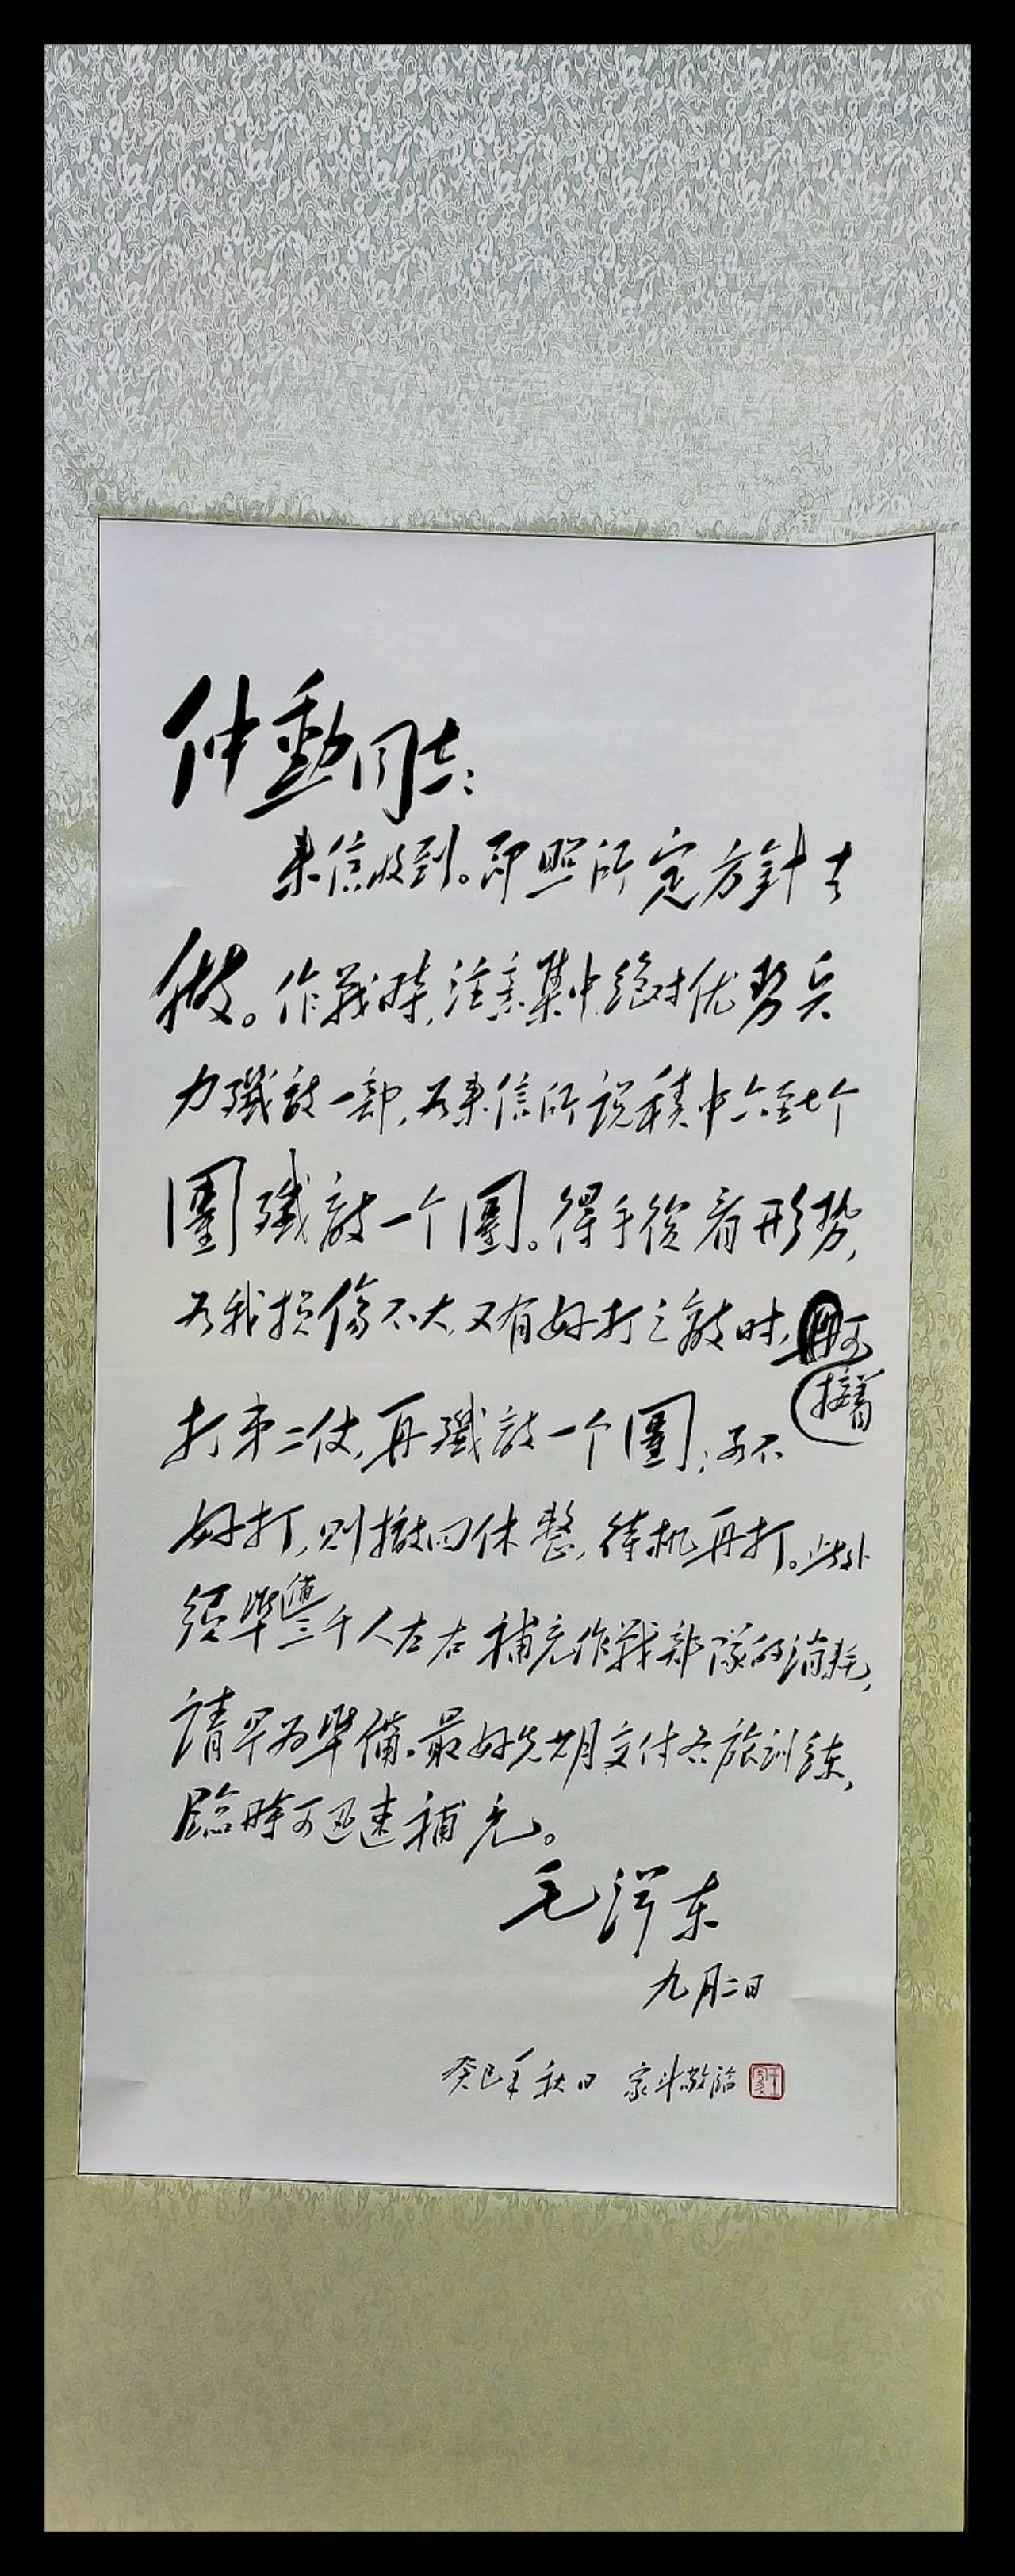 仲勳同志：
来信收到。即照所定方針去
做。作戰時，注意集中绝对优势兵
力殲敌一部，如来信所说集中六至七个
團殲敌一个團。得手後看形势，
如我损傷不大，又有好打之敵时，可
接着
打第二仗，再殲敌一个團；若不
好打，则撤回休整，待机再打。此外
须準備三千人左右補充作戰部隊的消耗，
請早为準備。最好先期交付各旅训练，
臨時可迅速補充。
毛泽东
九月二日
癸巳年秋日 家斗敬臨